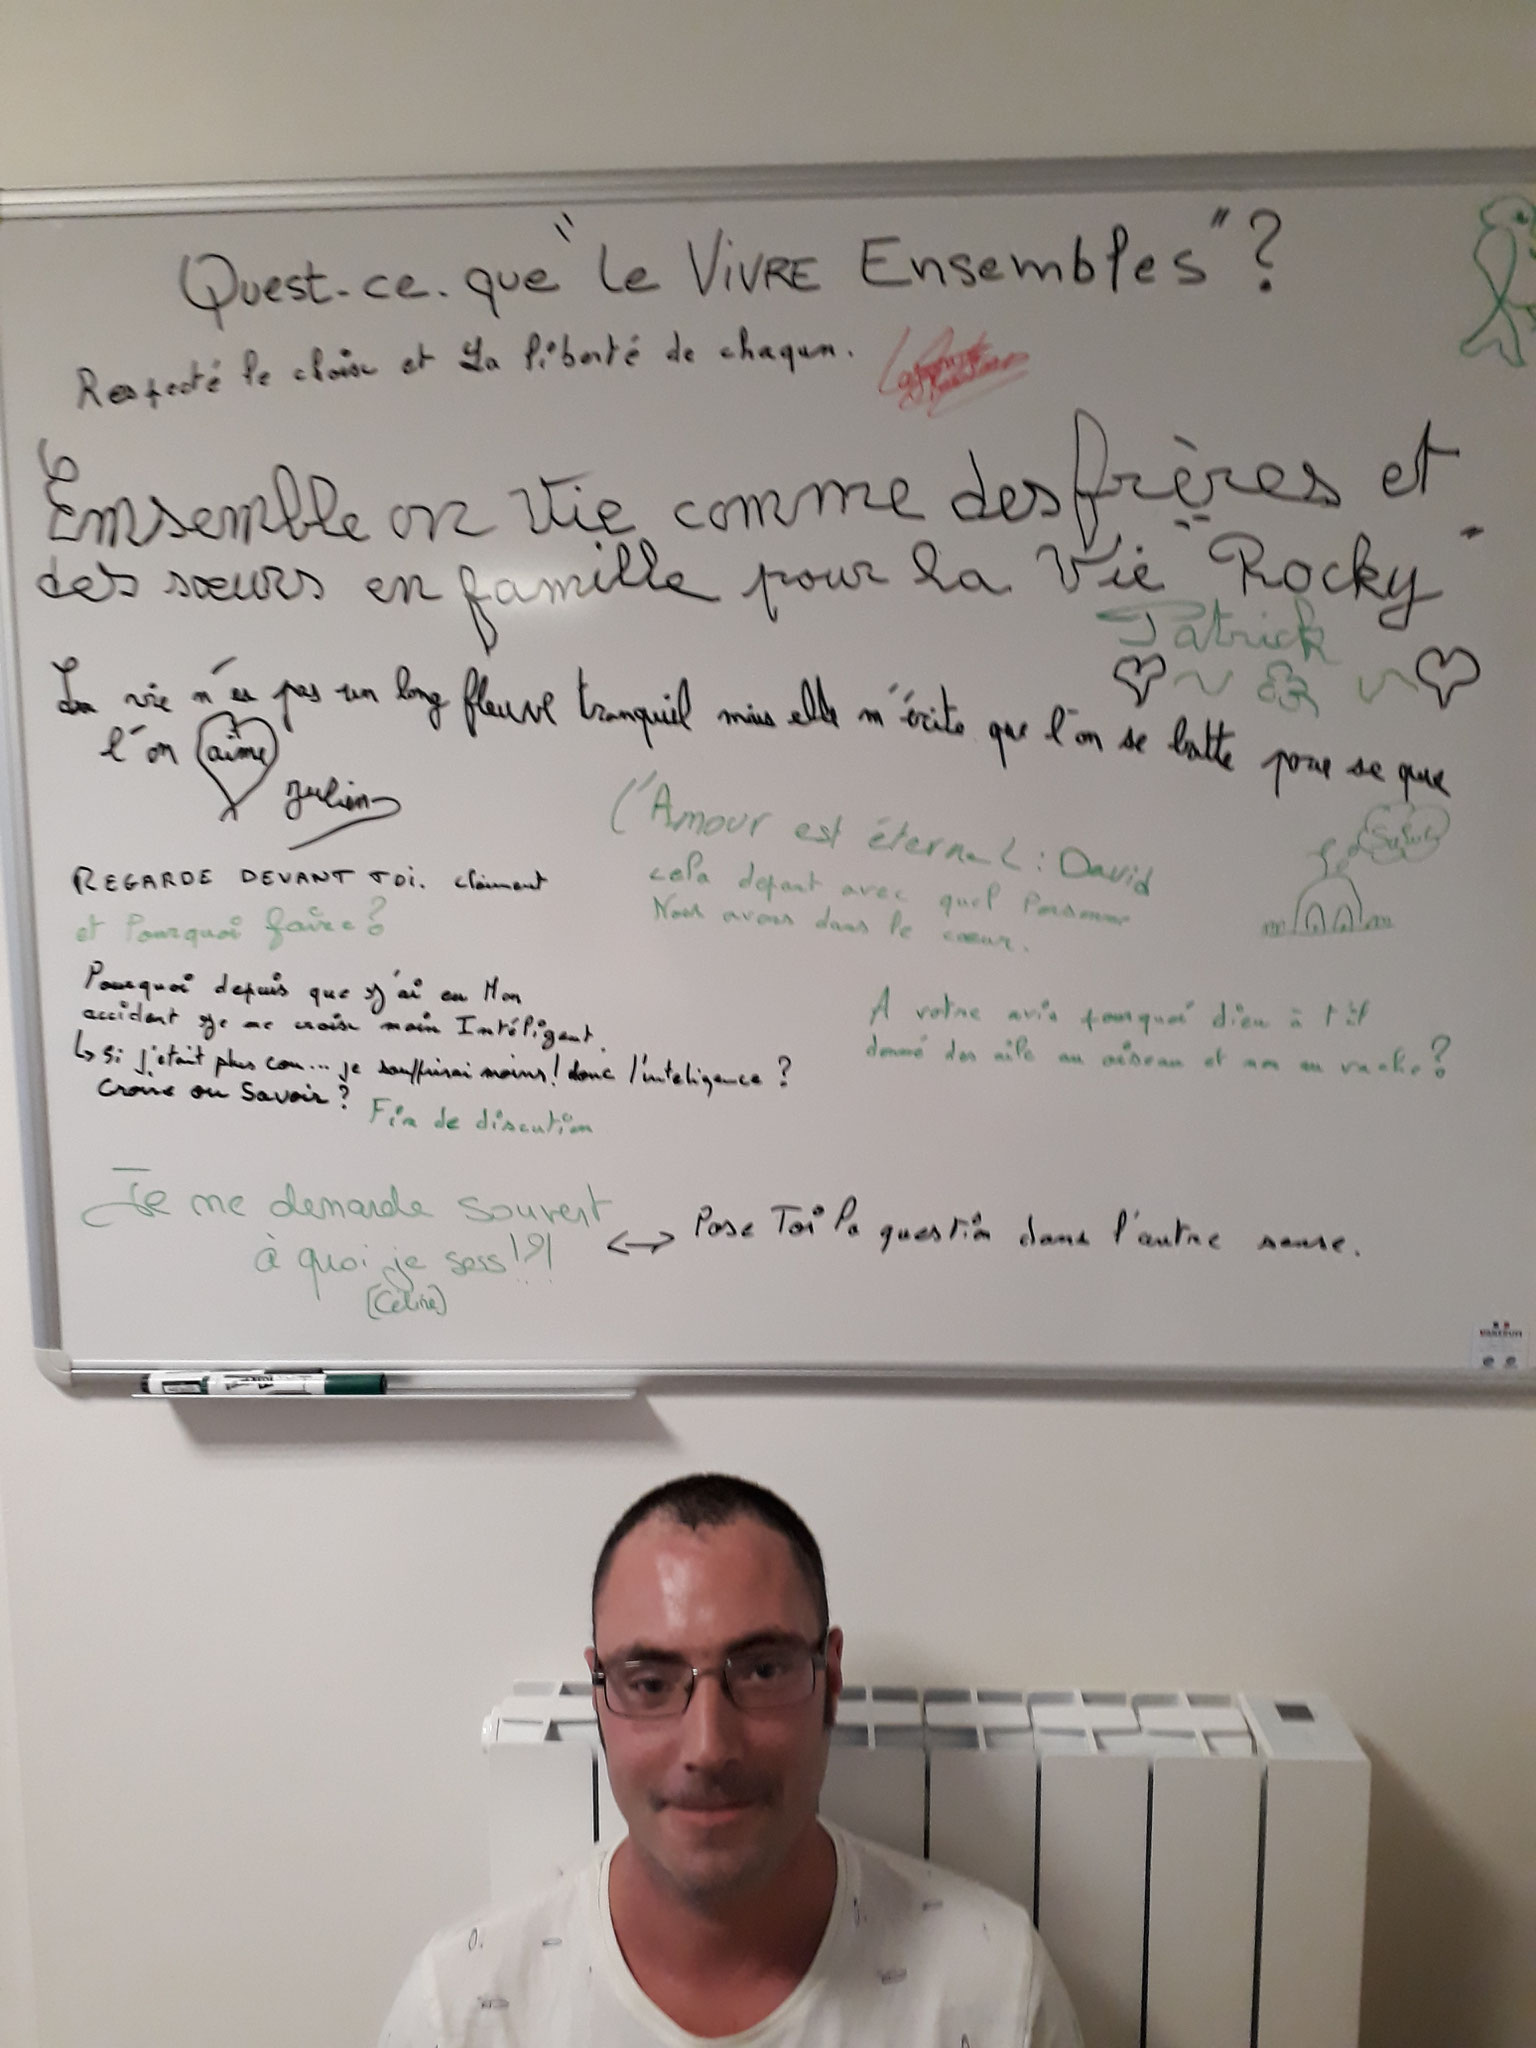 Quest-ce-que "le VIVRE Ensembles"?
Respecté le choix et La liberté de chaqun.
Ensemble on vie comme des frères et
des sœurs en famille pour la vie "Rocky"
Patrick
La vie n'es pas un long fleuve tranquil mais elle m'érite que l'on se batte pour se que
l'on aime
Julien
L'Amour est éternel : David
cela depant avec quel Personne
Nous avons dans le cœur.
Salut
REGARDE DEVANT TOI.
et Pourquoi faire?
Pourquoi depuis que j'ai eu Mon
accident je me croise moin Intéligent.
↳ Si j'était plus con... je souffrirai moins! donc l'inteligence?
Croire ou Savoir?
Fin de discution
A votre avis pourquoi dieu à t'il
donné des aile au oiseau et non au vache?
Je me demande souvent
à quoi je sers!?!
(Céline)
<-> Pose Toi la question dans l'autre sense.